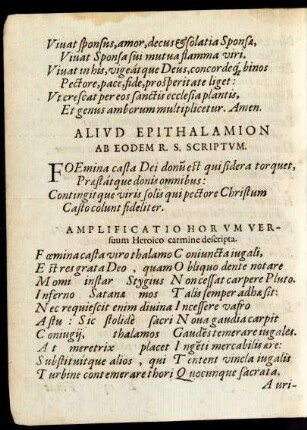 Viuat sponsus, amor, decus & solatia Sponsæ,
Viuat Sponsa sui mutua flamma viri.
Viuat in his, vigeátque Deus, concordeq́; binos
Pectore, pace, fide, prosperitate liget:
Vt crescat per eos sanctis ecclesia plantis,
Et genus amborum multiplicetur. Amen.
ALIVD EPITHALAMION
AB EODEM R. S. SCRIPTVM.
FOEmina casta Dei donū est qui sidera torquet,
Præstátque donis omnibus:
Contingit que viris solis qui pectore Christum
Casto colunt fideliter.
AMPLIFICATIO HORVM VER-
suum Heroico carmine descripta.
Fœmina casta viro thalamo Coniuncta iugali,
Est res grata Deo, quam Obliquo dente notare
Momi instar Stygius Non cessat carpere Pluto.
Inferno Satanæ mos Talis semper adhæsit:
Nec requiescit enim diuina Incessere vafro
Astu: Sic stolidè sacri Noua gaudia carpit
Coniugij, thalamos Gaudēs temerare iugales.
At meretrix placet Ingēti mercabilis ære:
Substituitque alios, qui Tentent vincla iugalis
Turbine contemerare thori Quocunque sacrata.
Auri-